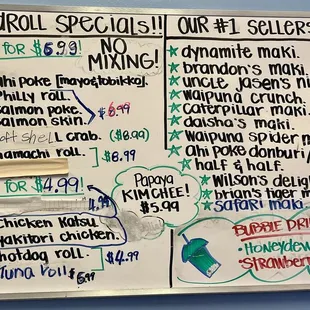 DROLL SPECIALS!!
FOR $5.99!
NO
MIXING!
ahi Poke [mayo&tobikko].
Philly roll.
Salmon poke.
Salmon skin.
$6.99
soft shell crab. ($6.99)
hamachi roll.
$8.99
FOR $4.99!
4.99
Chicken Katsu
Yakitori chicken.
hotdog roll.
$4.99
Tuna roll $6.99
PAPAYA
KIMCHEE!
$5.99
OUR #1 SELLERS
dynamite maki.
brandon's maki.
uncle Jasen's ni
waipuna crunch.
caterpillar maki.
daisha's maki.
Waipuna spider m
ahi poke donburi/
half & half.
Wilson's delig
brian's tiger m
Safari maki.
BUBBLE DRI
•Honeydew
•Strawberr